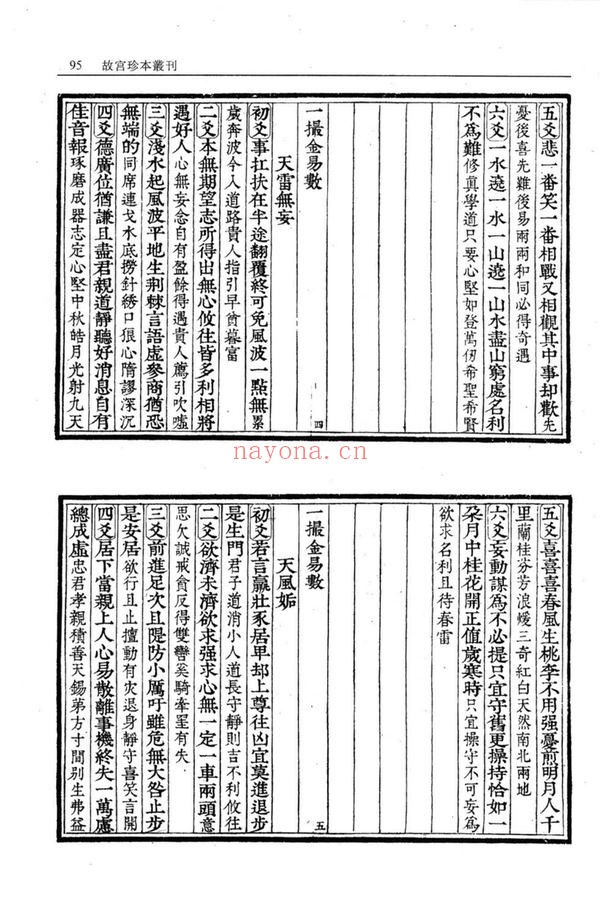 95 故宮珍本叢刊
五爻悲一番笑一番相戰又相觀其中事却歡先
憂後喜先難後易兩兩和同必得奇遇
六爻一水遶一水一山遶一山水盡山窮處名利
不為難修眞學道只要心堅如登萬仞希聖希賢
四
一撮金易數
天雷無妄
初爻事扛扶在半途翻覆終可免風波一點無累
歲奔波今入道路貴人指引早貧暮富
二爻本無期望志所得出無心攸往皆多利相將
遇好人心無妄念自有盈餘得遇貴人薦引吹噓
三爻淺水起風波平地生荆棘言語虛參商猶恐
無端的同席連戈水底撈針綉口狠心隋謬深沉
四爻德廣位猶謙且盡君親道靜聽好消息自有
佳音報琢磨成器志定心堅中秋皓月光射九天
nayona.cn
五爻喜喜喜春風生桃李不用强憂煎明月人千
里蘭桂芬芳浪煖三奇紅白天然南北兩地
六爻妄動謀為不必提只宜守舊更操持恰如一
朶月中桂花開正值歲寒時只宜操守不可妄為
欲求名利且待春雷
五
一撮金易數
天風姤
初爻若言羸壯豕居卑却上尊往凶宜莫進退步
是生門君子道消小人道長守靜則吉不利攸往
二爻欲濟未濟欲求强求心無一定一車兩頭意
思欠誠戒貪反得雙轡奚騎牽罣有失
三爻前進足次且隄防小厲吁雖危無大咎止步
是安居欲行且止擅動有灾退身靜守喜笑言開
四爻居下當親上人心易散離事機終失一萬慮
總成虛忠君孝親積善天錫第方寸間别生弗益